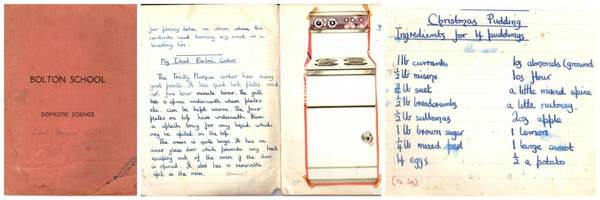 BOLTON SCHOOL
DOMESTIC SCIENCE
Carol
for placing dishes on when
contents need burning e.g. meat in a
My Ideal Electric Cooker
The Tricity Marquise cooker has many
good points. It has quick hot plate and
hour minute timer. The grill
has a space underneath where plates
etc. can be kept warm. The four
plates on top have underneath them
a splash tray for any liquid which
may be spilled on the top.
The oven is quite large. It has an
inner glass door which prevents any heat
escaping out of the oven if the door
is opened. It also has a removable
in the oven.
Christmas Pudding
Ingredients for 4 puddings
1 lb currants
½ lb raisins
¾ lb suet
½ lb breadcrumbs
½ lb sultanas
1 lb brown sugar
¼ lb mixed peel
4 eggs
almonds (ground
flour
a little mixed spice
a little nutmeg
2oz apple
1 lemon
1 large carrot
½ a potato